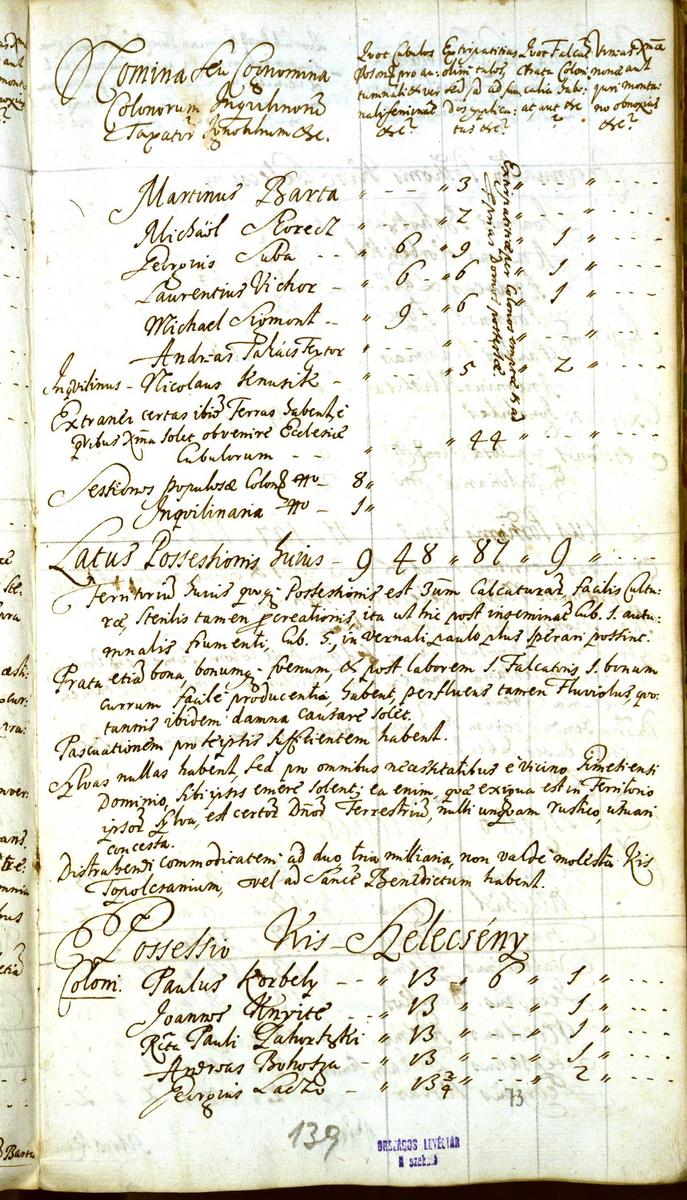 Nomina seu Cognomina
Colonorum Inquilinorũ
Taxator &c.
Quot Cubulos
Posonz pro au:
tumnali & ver
nali seminaõ
&c?
Extirpatitias
olim tulos,
sed jã ad
Dis
tus &c?
Quot Falcaz
Prata Coloni
calia habe:
at, aut &c
?
Vineas Xmã
nonã aut
juri monta:
no obnoxias
&c?
Martinus Barta " - - - " 3 " - - - " - - -
Michaël Sorecz " - - - " 2 " - - - "
Georgius Suba - - " 6 " 9 " 1 " - - -
Laurentius Vichor - " 6 " 6 " 1 " - - -
Michael Sigmont - " 9 - " 6 " 1 " - - -
Andreas Takács Textor " - - "
Inqvilinus - Nicolaus Knusik - " - - " 5 " 2 " - - -
Extranei certas ibiõ Terras habent, è
qvibus Xma solet obvenire Ecclesiæ
Cubulorum - - " " 44 " - - " - - -
Sessiones populosæ Colonz Nro - 8 "
Inqvilinaria Nro - 1 "
Latus Possessionis hujus - 9 48 " 87 " 9 " - - -
Territoriũ hujus qvoq; Possessionis est 3um Calcaturaz, facilis Cultu:
ræ, sterilis tamen ita ut hic post inseminaõ Cub. 1. autu:
mnalis frumenti, Cub. 5, in vernali paulo plus sperari possint.
Prata etiã bona, bonumq; foenum, & post laborem 1 Falcatoris 1. bonum
currum facile producentia, habent, perfluens tamen Fluviolus, qvo:
tannis ibidem damna causare solet.
Pascuationem pro se ipsis sufficientem habent.
Sylvas nullas habent, sed pro omnibus necessitatibus è vicino Simetienti
Dominio, sibi ipsis emere solent; ea enim, quæ exigua est in Territorio
ipsoz sylva, est certoz Dnoz Terrestriũ, nulli unqvam rustico, usuari
concessa.
Distrahendi commoditatem ad duo, tria milliaria, non valde molestã Kis
Topolcsanium, vel ad Sanct Benedictum habent.
Possessio Kis-Szelecsény
Coloni. Paulus Korbely - - " 13 " 6 " 1 " - - -
Joannes Knyite - - " 13 " - - " 1 " - - -
Rcta Pauli Zahorszki " 13 " - - " 1 " - - -
Andreas Bohotza - - " 13 " - - " 1 " - - -
Georgius Laczo - - " 13 2/4 " - - " 2 " - - -
73
139
ORSZÁGOS LEVÉLTÁR
N szekció